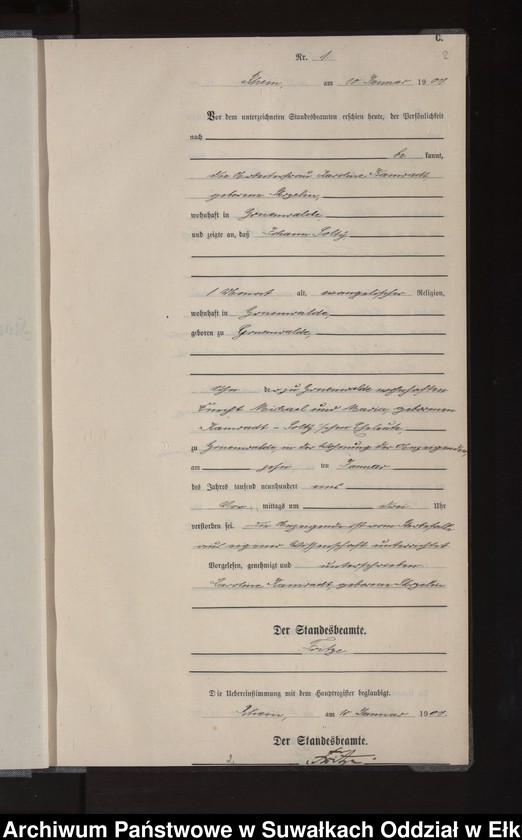 C.
2
Nr. 1.
Rhein, am 10 Januar 1901
Vor dem unterzeichneten Standesbeamten erschien heute, der Persönlichkeit
nach
be kannt,
die Arbeiterfrau Karoline Kamradt,
geborene
wohnhaft in Grunenwalde,
und zeigte an, daß Johann
1 Monat alt, evangelischer Religion,
wohnhaft in Grunenwalde,
geboren zu Grunenwalde,
Sohn der zu Grunenwalde wohnhaften
Michael und Maria, geborenen
Kamradt - Eheleute,
zu Grunenwalde, in der Wohnung der Anzeigenden,
am ten Januar
des Jahres tausend neunhundert eins
Vor mittags um drei Uhr
verstorben sei. Die Anzeigende ist vom Sterbefall
aus eigener Wissenschaft unterrichtet
Vorgelesen, genehmigt und unterschrieben
Karoline Kamradt, geborene
Der Standesbeamte.
Fritze
Die Uebereinstimmung mit dem Hauptregister beglaubigt.
Rhein, am 10 Januar 1901.
Der Standesbeamte.
Fritze.
Archiwum Państwowe w Suwałkach Oddział w Ełk